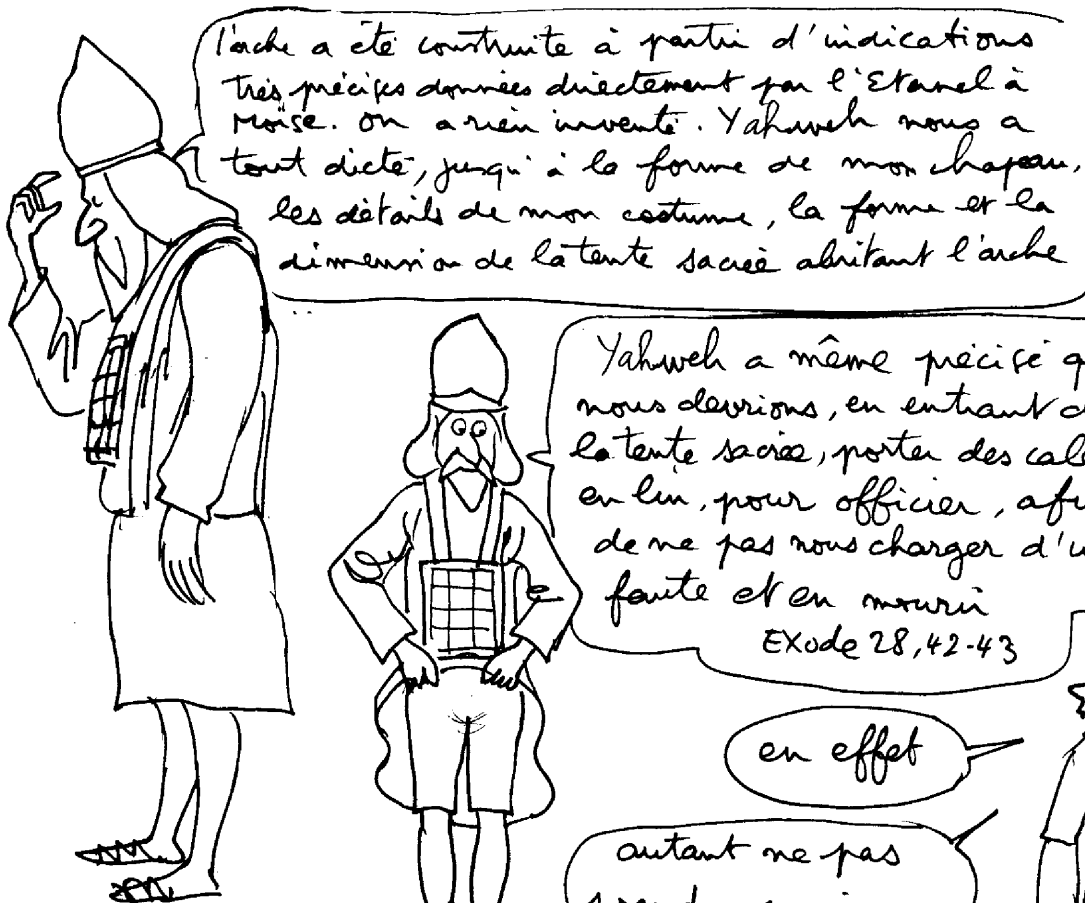 l'arche a été construite à partir d'indications
très précises données directement par l'Eternel à
Moïse. on a rien inventé. Yahweh nous a
tout dicté, jusqu'à la forme de mon chapeau,
les détails de mon costume, la forme et la
dimension de la tente sacrée abritant l'arche
Yahweh a même précisé q
nous devrions, en entrant d
la tente sacrée, porter des cale
en lin, pour officier, afi
de ne pas nous charger d'u
faute et en mourir
EXode 28,42-43
en effet
autant ne pas